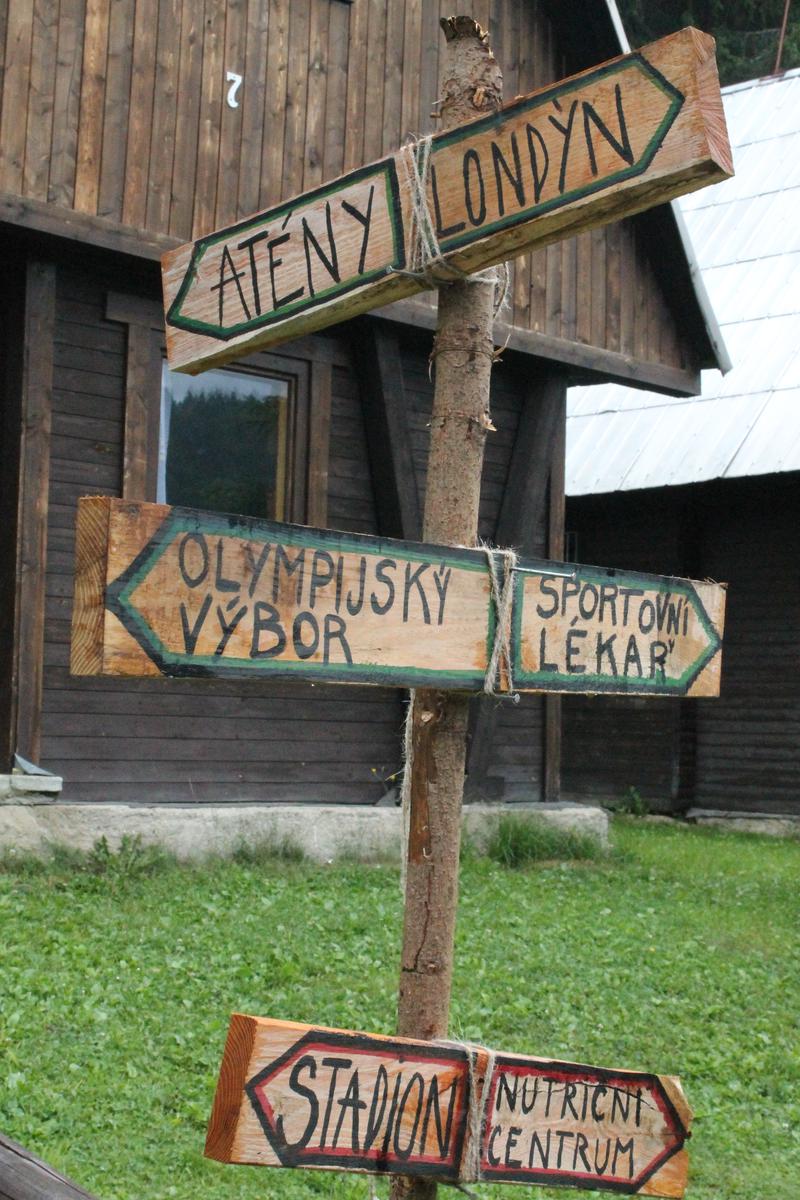 7
ATÉNY
LONDÝN
OLYMPIJSKÝ
VÝBOR
SPORTOVNÍ
LÉKAŘ
STADION
NUTRIČNÍ
CENTRUM